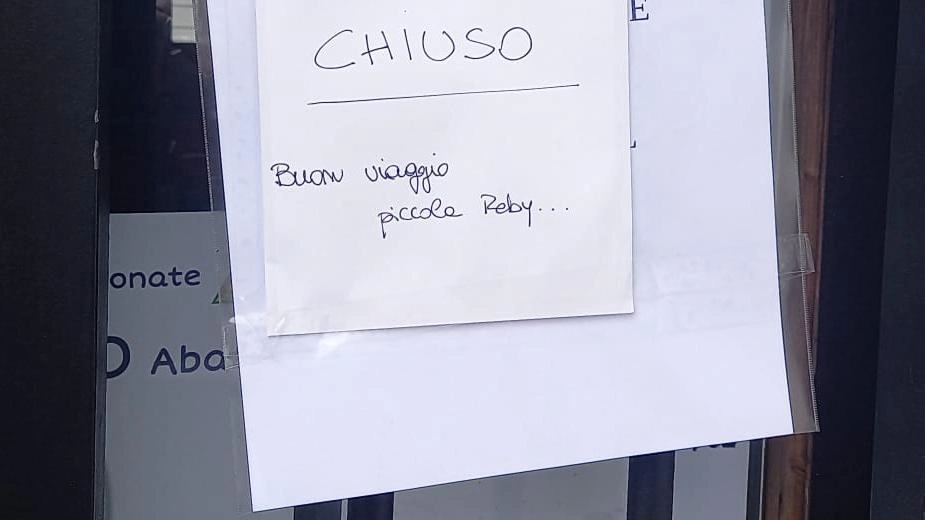 E
CHIUSO
Buon viaggio
piccola Reby...
onate
O Aba